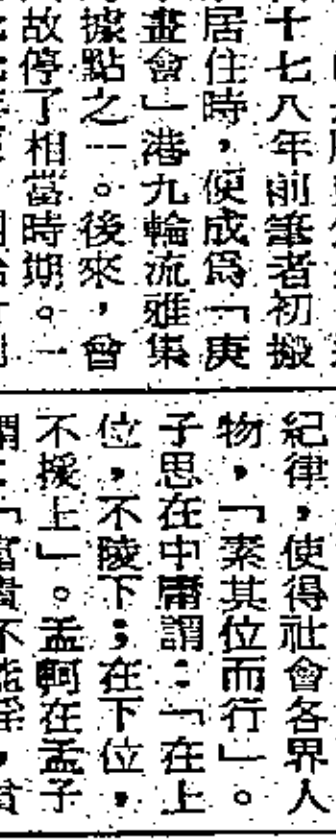 十七八年前筆者初搬
居住時，便成爲「庚
畫會」港九輪流雅集
據點之一。後來，會
故停了相當時期。一
紀律，使得社會各界人
物，「素其位而行」。
子思在中庸謂：「在上
位，不陵下；在下位，
不援上」。孟軻在孟子